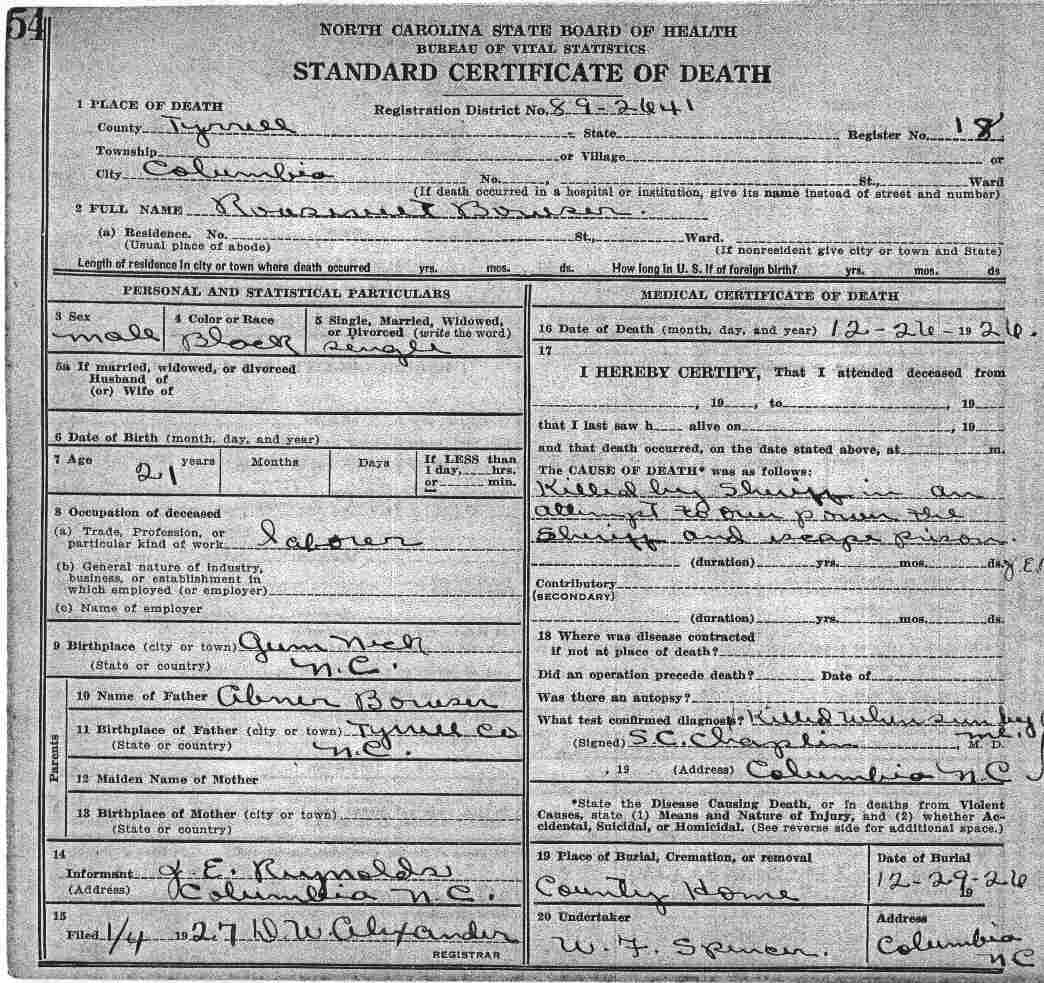 54
NORTH CAROLINA STATE BOARD OF HEALTH
BUREAU OF VITAL STATISTICS
STANDARD CERTIFICATE OF DEATH
1 PLACE OF DEATH
Registration District No. 89-2641
County Tyrrell State Register No. 18
Township or Village or
City Columbia No. , St., Ward
(If death occurred in a hospital or institution, give its name instead of street and number)
2 FULL NAME Bowser.
(a) Residence. No. St., Ward.
(Usual place of abode) (If nonresident give city or town and State)
Length of residence in city or town where death occurred yrs. mos. ds. How long in U. S. if of foreign birth? yrs. mos. ds
PERSONAL AND STATISTICAL PARTICULARS
3 Sex
male
4 Color or Race
Black
5 Single, Married, Widowed,
or Divorced (write the word)
single
5a If married, widowed, or divorced
Husband of
(or) Wife of
6 Date of Birth (month, day, and year)
7 Age 21 years Months Days
If LESS than
1 day, hrs.
or min.
8 Occupation of deceased
(a) Trade, Profession, or
particular kind of work laborer
(b) General nature of industry,
business, or establishment in
which employed (or employer)
(c) Name of employer
9 Birthplace (city or town) Gum Neck
(State or country) N.C.
Parents
10 Name of Father Abner Bowser
11 Birthplace of Father (city or town) Tyrrell Co
(State or country) N.C.
12 Maiden Name of Mother
13 Birthplace of Mother (city or town)
(State or country)
14
Informant J. E. Reynolds
(Address) Columbia N.C.
15
Filed 1/4 1927 D W Alexander
REGISTRAR
MEDICAL CERTIFICATE OF DEATH
16 Date of Death (month, day, and year) 12-26-1926.
17
I HEREBY CERTIFY, That I attended deceased from
, 19 , to , 19
that I last saw h alive on , 19
and that death occurred, on the date stated above, at m.
The CAUSE OF DEATH* was as follows:
Killed by Sheriff in an
attempt to over power the
Sheriff and escape prison.
(duration) yrs. mos. ds.
Contributory
(SECONDARY)
(duration) yrs. mos. ds.
18 Where was disease contracted
if not at place of death?
Did an operation precede death? Date of
Was there an autopsy?
What test confirmed diagnosis? Killed when seen by
me.
(Signed) S.C. Chaplin , M. D.
, 19 (Address) Columbia N.C
*State the Disease Causing Death, or in deaths from Violent
Causes, state (1) Means and Nature of Injury, and (2) whether Ac-
cidental, Suicidal, or Homicidal. (See reverse side for additional space.)
19 Place of Burial, Cremation, or removal
County Home
Date of Burial
12-29-26
19
20 Undertaker
W. F. Spencer.
Address
Columbia
NC